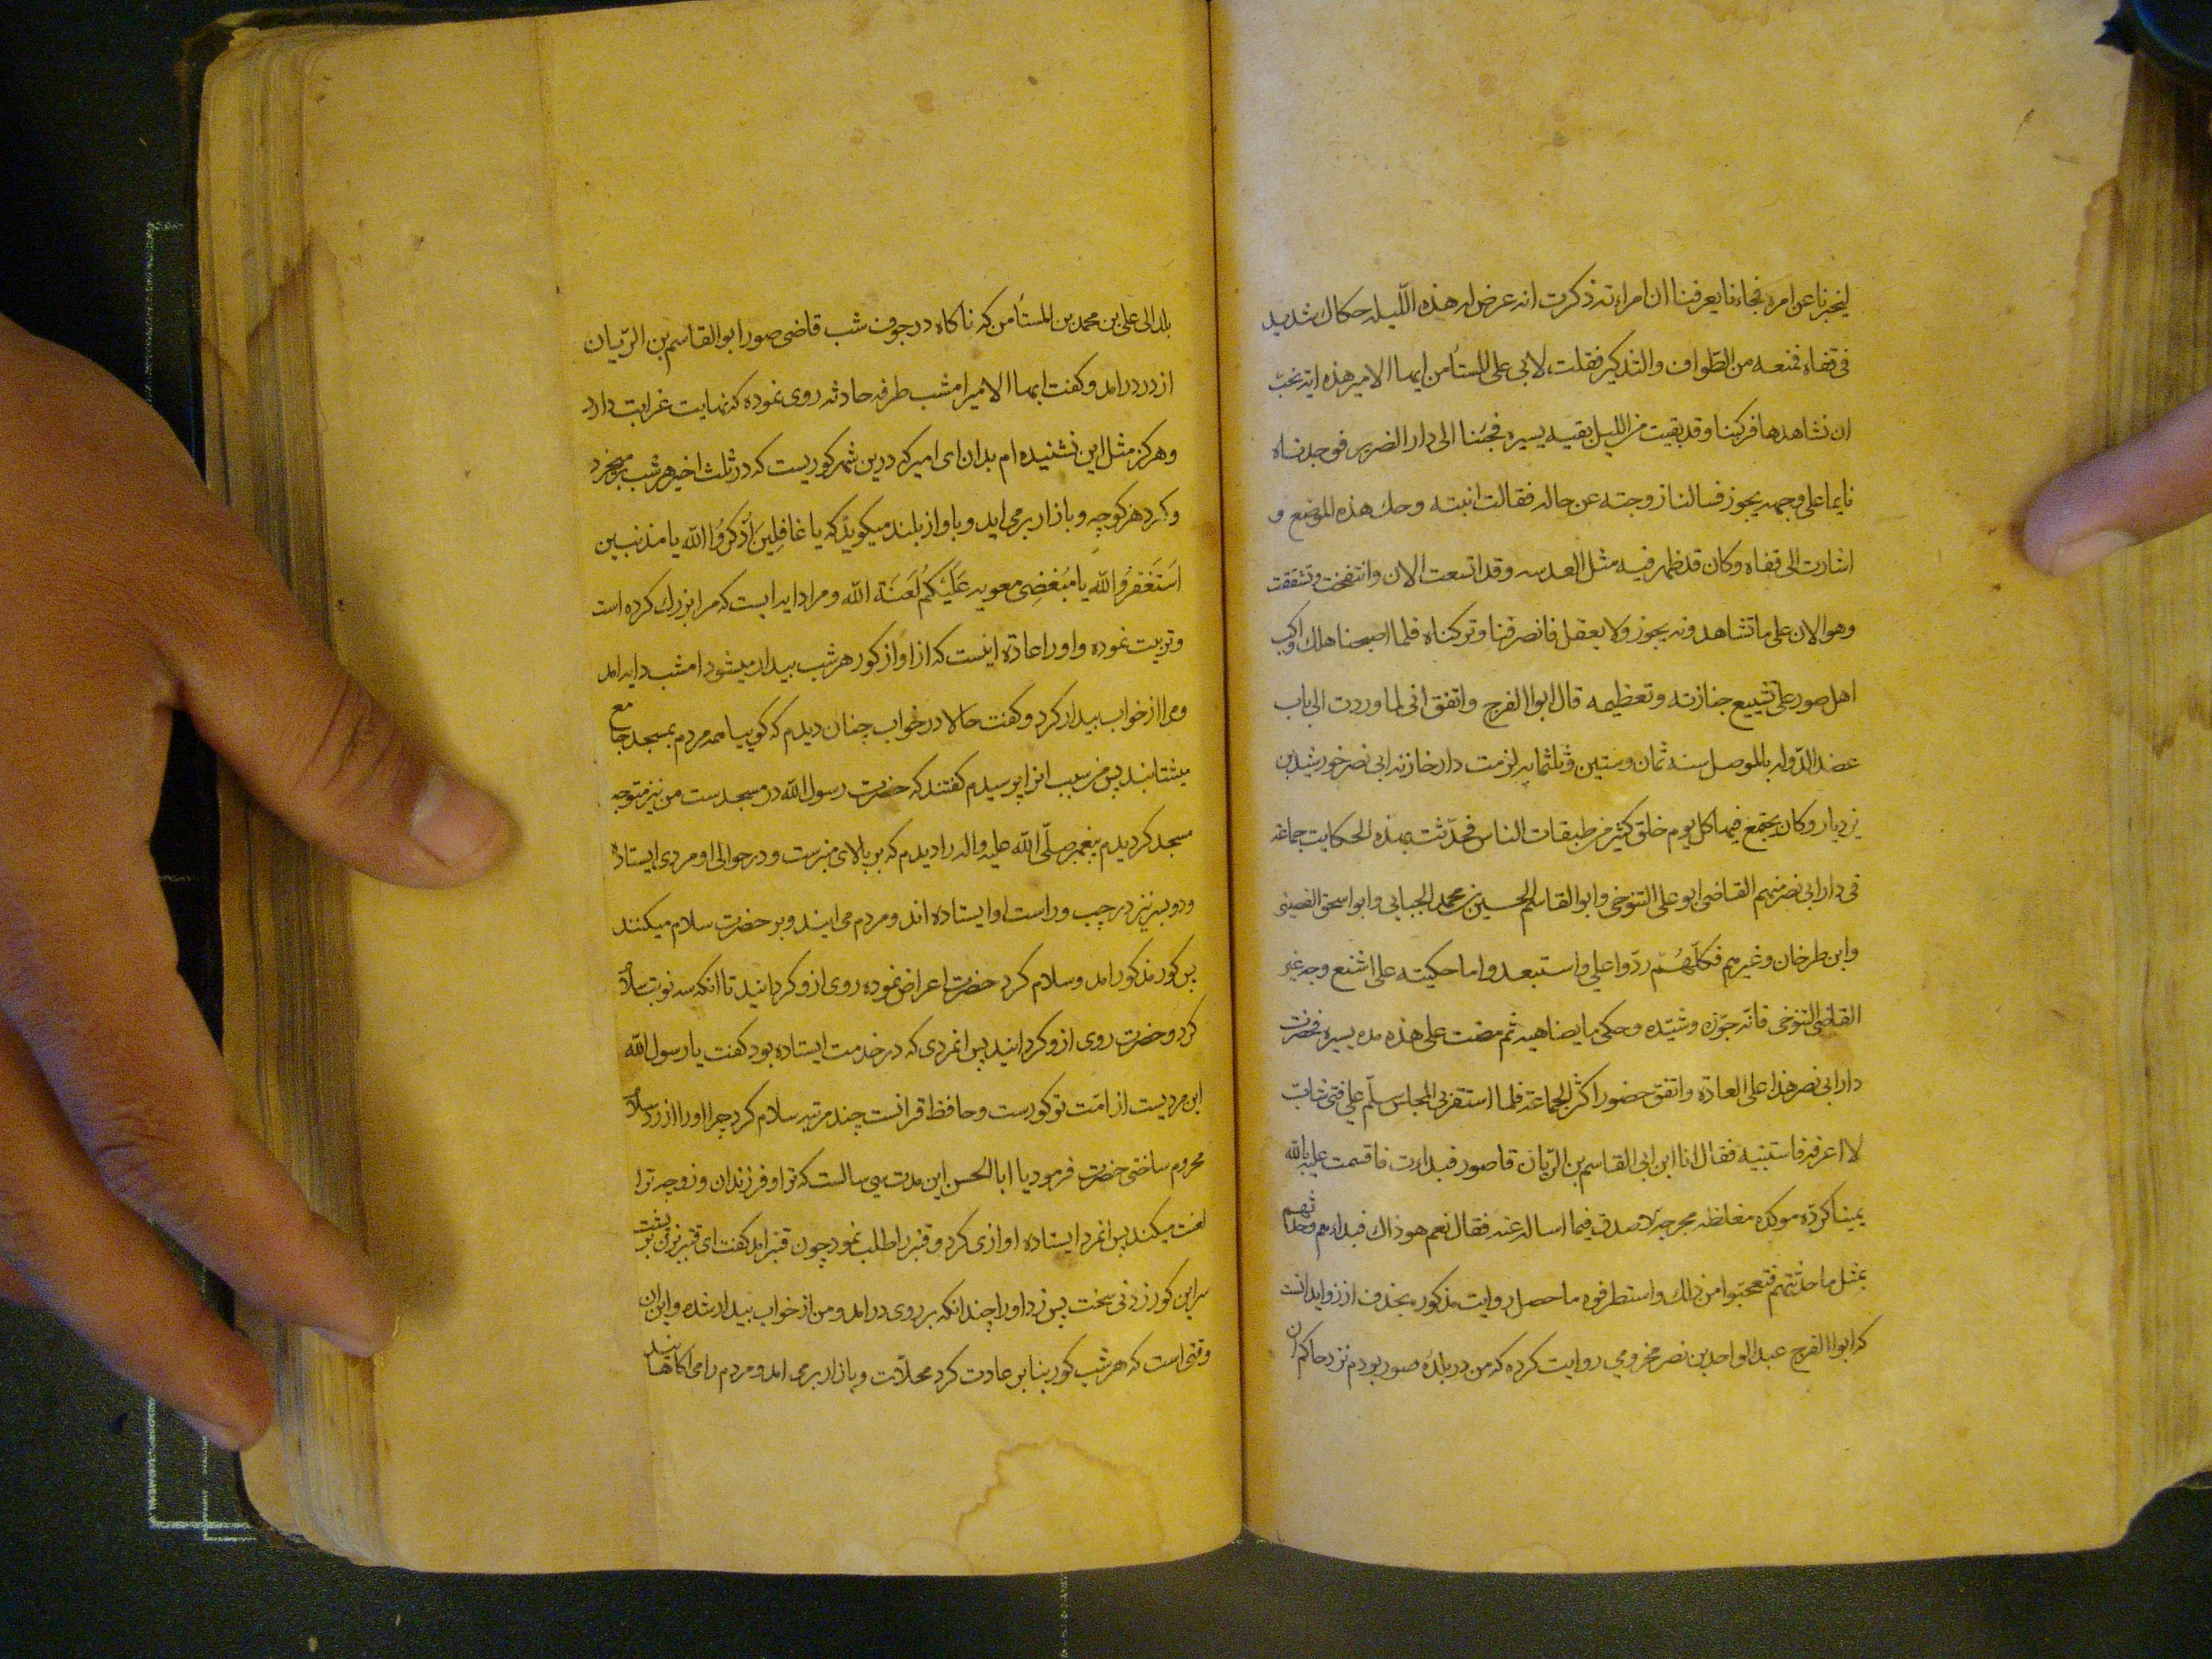 ليخبرنا عن امره فجاءنا يعرفنا ان امراءته ذكرت انه عرض له هذه اللّيله حكاك شديد
فى قفاه فمنعه من الطواف والتذكير فقلت لابى على المستأمن ايها الامير هذه اية نحبّ
ان نشاهدها فركبنا وقد بقيت من الليل بقيه يسيره فجئنا الى دار الضرير فوجدناه
نايما على وجهه يخور فسالنا زوجته عن حاله فقالت انتبه وحك هذه الموضع و
اشارت الى قفاه وكان قد ظهر فيه مثل العدسه وقد اتسعت الان وانتفخت وتشققت
وهو الان على ما تشاهدونه يخور ولا يعقل فانصرفنا وتركناه فلما اصبحنا هلك واكب
اهل صور على تشييع جنازته وتعظيمه قال ابوا الفرج واتفق انى لما وردت الى باب
عضد الدّوله بالموصل سنه ثمان وستين وثلثمايه لزمت دار خازنه ابى نصر خورشيد بن
يزديار وكان يجتمع فيها كل يوم خلق كثير من طبقات الناس فحدّثت بهذه الحكايت جماعة
فى دار ابى نصر منهم القاضى ابو على التنوخى وابو القاسم الحسين بن محمد الجبايى وابو اسحق النصيبى
وابن طرخان وغيرهم فكلّهُم ردّوا على واستبعدوا ما حكيته على اشنع وجه غير
القاضى التنوخى فانّه جوّزه وشيّده وحكى ما يضاهيه ثم مضت على هذه مده يسيره فحضرت
دار ابى نصر هذا على العادة واتفق حضور اكثر الجماعة فلما استقر بى المجلس سلّم على فتى شابّ
لا اعرفه فاستنبته فقال انا ابن ابى القاسم بن الرّيان قا صور فبداءت فاقسمت عليه بالله
يمينا كرّه موكده مغلظه محرجه الا صدق فيما اساله عنه فقال نعم هو ذاك فبداءهم وحدثهم
بمثل ما حدثتهم فتعجبوا من ذلك واستطرفوه ما حصل روايت مذكوره بحذف از زوايد انست
كه ابوا الفرج عبد الواحد بن نصر مخزومى روايت كرده كه من در بلدهٔ صور بودم نزد حاكم ان
بلد الى على بن محمد بن المستأمن كه ناكاه در جوف شب قاضى صور ابو القاسم بن الرّيان
از در درامد وكفت ايها الامير امشب طرفه حادثه روى نموده كه نهايت غرابت دارد
وهركز مثل اين نشنيده ام بدان اى امير كه درين شهر كوريست كه در ثلث اخير هر شب برميخزد
وكرد هر كوچه وبازار برمى ايد وباواز بلند ميكويد كه يا غافِلِينَ اُذْكُرُوُا الله يا مذنبين
اسَتَغْفرُوا لله يا مُبْغضِى معويه عَلَيْكُم لَعَنَة الله ومرا دايه ايست كه مرا بزرك كرده است
وتربيت نموده واورا عادة اينست كه از اواز كور هر شب بيدار ميشود امشب دايه امد
ومرا از خواب بيدار كرد وكفت حالا در خواب چنان ديدم كه كوييا همه مردم بمسجد جامع
ميشتابند پس من سبب انرا پرسيدم كفتند كه حضرت رسول الله در مسجدست من نيز متوجه
مسجد كرديدم پيغمبر صلّى الله عليه واله را ديدم كه بر بالاى منبرست ودر حوالى او مردى ايستاده
ودو پسر نيز در چپ وراست او ايستاده اند ومردم مى ايند وبر حضرت سلام ميكنند
پس كور مذكور امد وسلام كرد حضرت اعراض نموده روى از وكردانيد تا انكه سه نوبت سلام
كرد وحضرت روى از وكردانيد پس انمردى كه در خدمت ايستاده بود كفت يا رسول الله
اين مرديست از امّت تو كورست وحافظ قرانست چند مرتبه سلام كرد چرا اورا از رد سلام
محروم ساختى حضرت فرمود يا ابا الحسن اين مدت سى سالست كه ترا وفرزندان وزوجه ترا
لعنت ميكند پس انمرد ايستاده اوازى كرد وقنبر را طلب نمود چون قنبر امد كفت اى قنبر بزن بر پشت
سر اين كور زدنى سخت پس زد اورا چندانكه بر روى درامد ومن از خواب بيدار شده واين ان
وقتى است كه هر شب كور بنا بر عادت كرد محلّات وبازار برمى امد ومردم را مى اكاهانيد